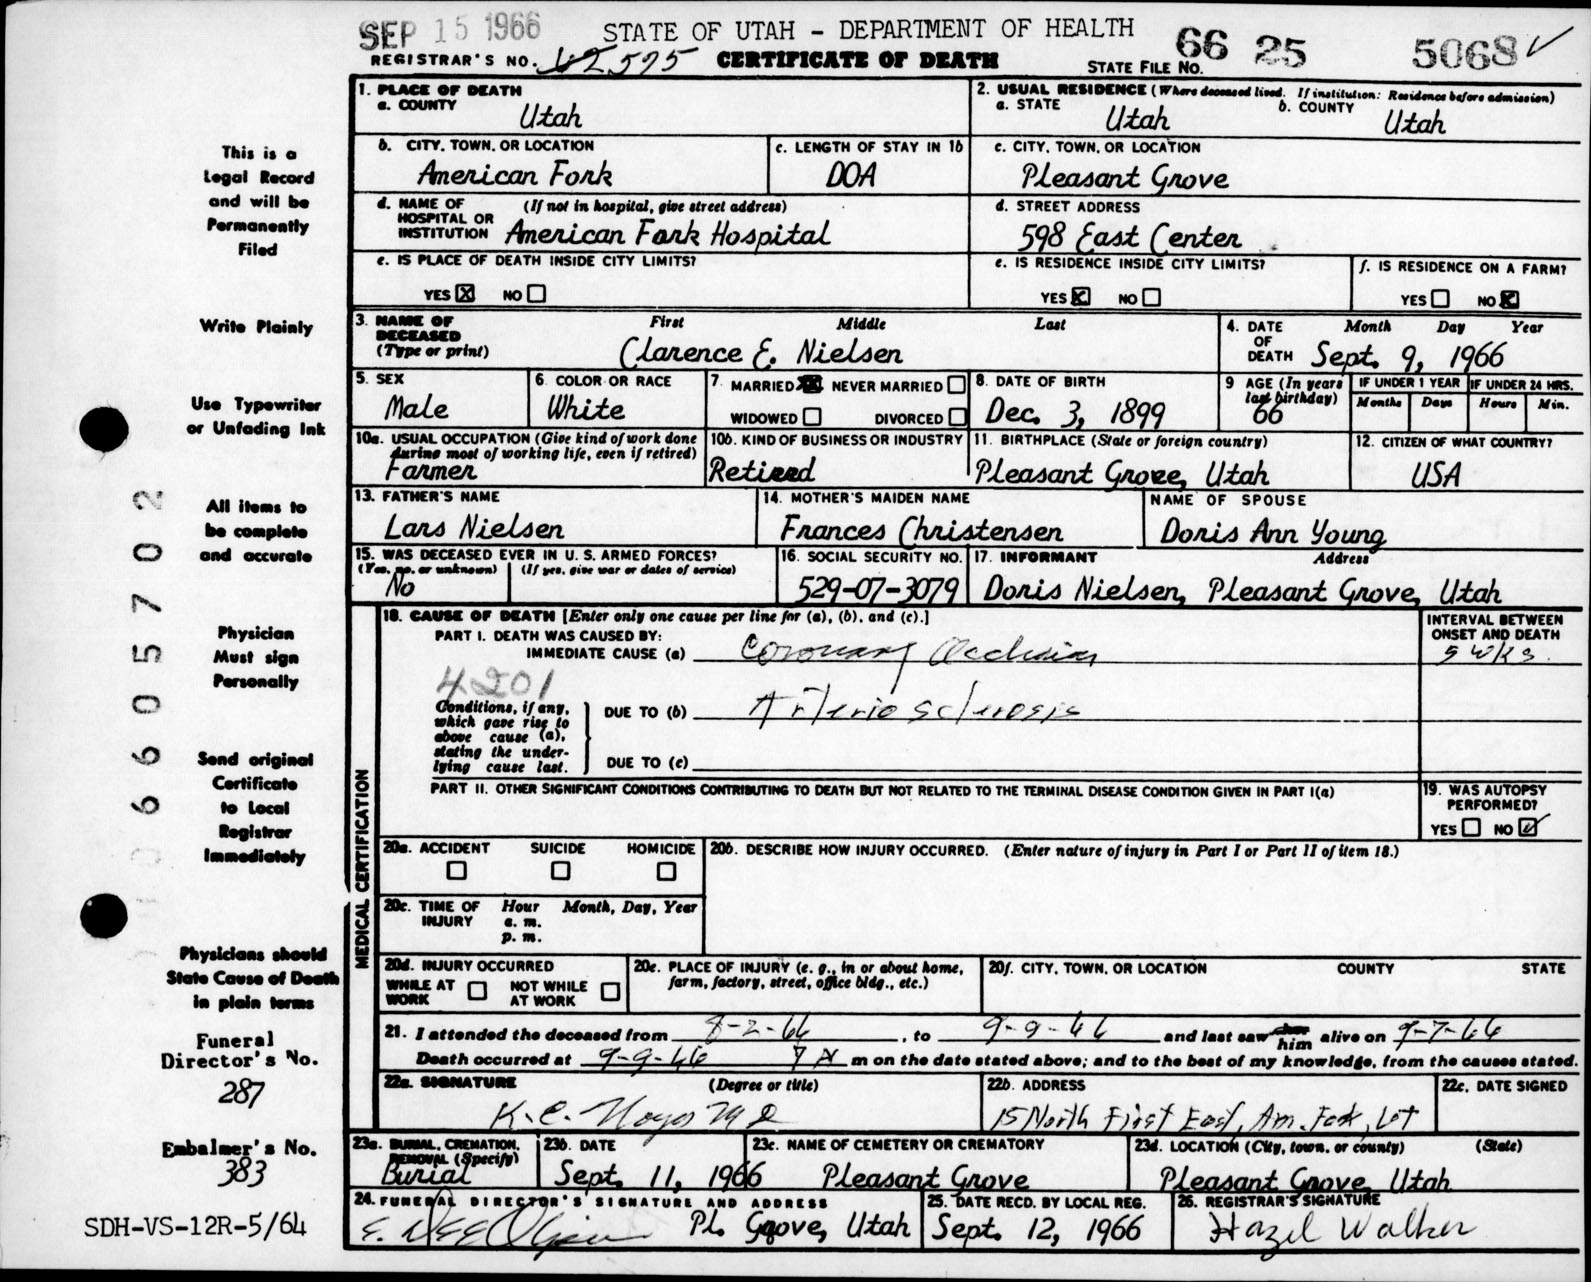 SEP 15 1966
STATE OF UTAH - DEPARTMENT OF HEALTH
66 25 5068 ✓
REGISTRAR'S NO. 575
CERTIFICATE OF DEATH
STATE FILE NO.
This is a
Legal Record
and will be
Permanently
Filed
Write Plainly
Use Typewriter
or Unfading Ink
All items to
be complete
and accurate
Physician
Must sign
Personally
Send original
Certificate
to Local
Registrar
Immediately
Physicians should
State Cause of Death
in plain terms
Funeral
Director's No.
287
Embalmer's No.
383
SDH-VS-12R-5/64
0 6 6 0 5 7 0 2
1. PLACE OF DEATH
a. COUNTY
Utah
2. USUAL RESIDENCE (Where deceased lived. If institution: Residence before admission)
a. STATE
Utah
b. COUNTY
Utah
b. CITY, TOWN, OR LOCATION
American Fork
c. LENGTH OF STAY IN 1b
DOA
c. CITY, TOWN, OR LOCATION
Pleasant Grove
d. NAME OF (If not in hospital, give street address)
HOSPITAL OR
INSTITUTION American Fork Hospital
d. STREET ADDRESS
598 East Center
e. IS PLACE OF DEATH INSIDE CITY LIMITS?
YES X NO
e. IS RESIDENCE INSIDE CITY LIMITS?
YES X NO
f. IS RESIDENCE ON A FARM?
YES NO X
3. NAME OF DECEASED
(Type or print)
First Middle Last
Clarence E. Nielsen
4. DATE OF DEATH
Month Day Year
Sept. 9, 1966
5. SEX
Male
6. COLOR OR RACE
White
7. MARRIED X NEVER MARRIED
WIDOWED DIVORCED
8. DATE OF BIRTH
Dec. 3, 1899
9 AGE (In years last birthday)
66
IF UNDER 1 YEAR
Months Days
IF UNDER 24 HRS.
Hours Min.
10a. USUAL OCCUPATION (Give kind of work done
during most of working life, even if retired)
Farmer
10b. KIND OF BUSINESS OR INDUSTRY
Retired
11. BIRTHPLACE (State or foreign country)
Pleasant Grove, Utah
12. CITIZEN OF WHAT COUNTRY?
USA
13. FATHER'S NAME
Lars Nielsen
14. MOTHER'S MAIDEN NAME
Frances Christensen
NAME OF SPOUSE
Doris Ann Young
15. WAS DECEASED EVER IN U. S. ARMED FORCES?
(Yes, no, or unknown) (If yes, give war or dates of service)
No
16. SOCIAL SECURITY NO.
529-07-3079
17. INFORMANT Address
Doris Nielsen, Pleasant Grove, Utah
MEDICAL CERTIFICATION
18. CAUSE OF DEATH [Enter only one cause per line for (a), (b), and (c).]
PART I. DEATH WAS CAUSED BY:
IMMEDIATE CAUSE (a) Coronary Occlusion
INTERVAL BETWEEN
ONSET AND DEATH
5 wks.
4201
Conditions, if any,
which gave rise to
above cause (a),
stating the under-
lying cause last.
DUE TO (b) Arteriosclerosis
DUE TO (c)
PART II. OTHER SIGNIFICANT CONDITIONS CONTRIBUTING TO DEATH BUT NOT RELATED TO THE TERMINAL DISEASE CONDITION GIVEN IN PART I(a)
19. WAS AUTOPSY
PERFORMED?
YES NO ✓
20a. ACCIDENT SUICIDE HOMICIDE
20b. DESCRIBE HOW INJURY OCCURRED. (Enter nature of injury in Part I or Part II of item 18.)
20c. TIME OF INJURY
Hour Month, Day, Year
a. m.
p. m.
20d. INJURY OCCURRED
WHILE AT WORK NOT WHILE AT WORK
20e. PLACE OF INJURY (e. g., in or about home,
farm, factory, street, office bldg., etc.)
20f. CITY, TOWN, OR LOCATION COUNTY STATE
21. I attended the deceased from 8-2-66, to 9-9-66 and last saw her him alive on 9-7-66
Death occurred at 9-9-66 7 A m on the date stated above; and to the best of my knowledge, from the causes stated.
22a. SIGNATURE (Degree or title)
K. C. MD
22b. ADDRESS
15 North First East, Am. Fork,
22c. DATE SIGNED
23a. BURIAL, CREMATION,
REMOVAL (Specify)
Burial
23b. DATE
Sept. 11, 1966
23c. NAME OF CEMETERY OR CREMATORY
Pleasant Grove
23d. LOCATION (City, town, or county) (State)
Pleasant Grove, Utah
24. FUNERAL DIRECTOR'S SIGNATURE AND ADDRESS
Pl. Grove, Utah
25. DATE RECD. BY LOCAL REG.
Sept. 12, 1966
26. REGISTRAR'S SIGNATURE
Hazel Walker